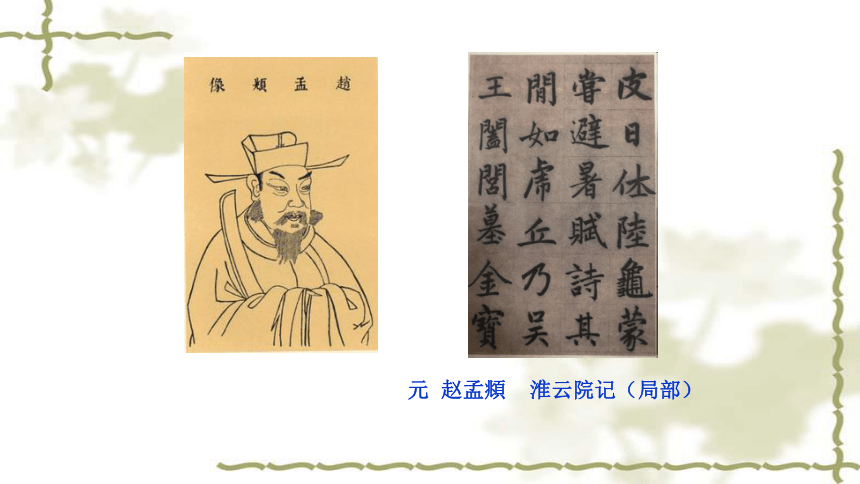 趙孟頫像
皮日休陸龜蒙
嘗避暑賦詩其
閒如虎丘乃吳
王闔閭墓金寶
元 赵孟頫 淮云院记（局部）